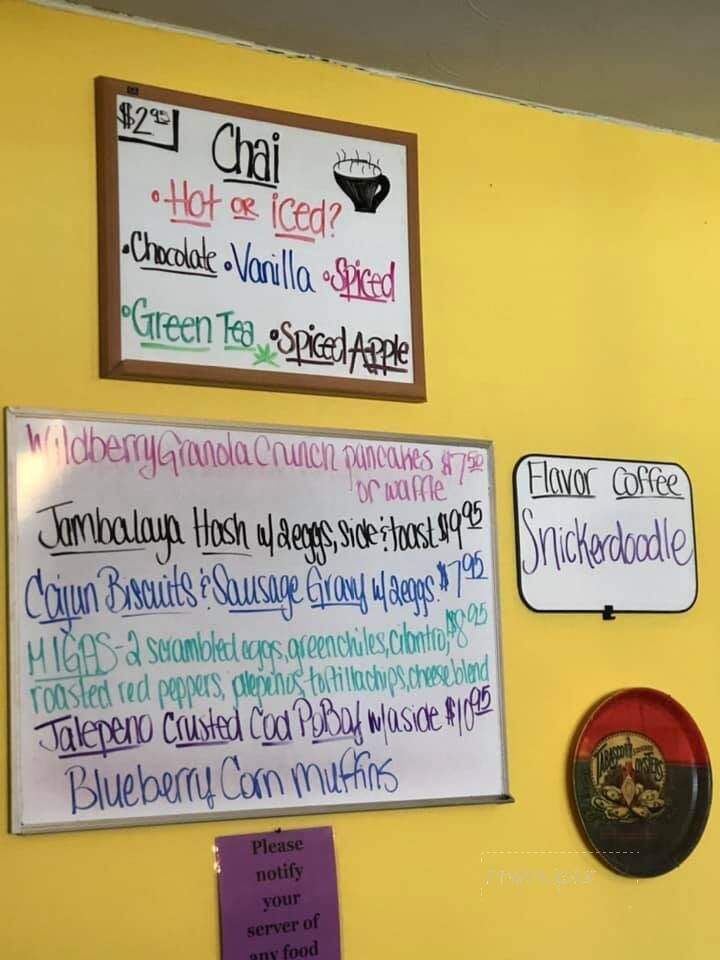 $2.95
Chai
•Hot or iced?
•Chocolate •Vanilla •Spiced
•Green Tea •Spiced Apple
Wildberry Granola Crunch pancakes $7.50
or waffle
Jambalaya Hash w/2eggs, side & toast $9.95
Cajun Biscuits & Sausage Gravy w/2eggs $7.95
MIGAS-2 scrambled eggs, green chiles, cilantro, $8.95
roasted red peppers, jalepenos, tortilla chips, cheese blend
Jalepeno Crusted Cod PoBoy w/a side $10.95
Blueberry Corn muffins
Flavor Coffee
Snickerdoodle
TABASCO
OYSTERS
Please
notify
your
server of
any food